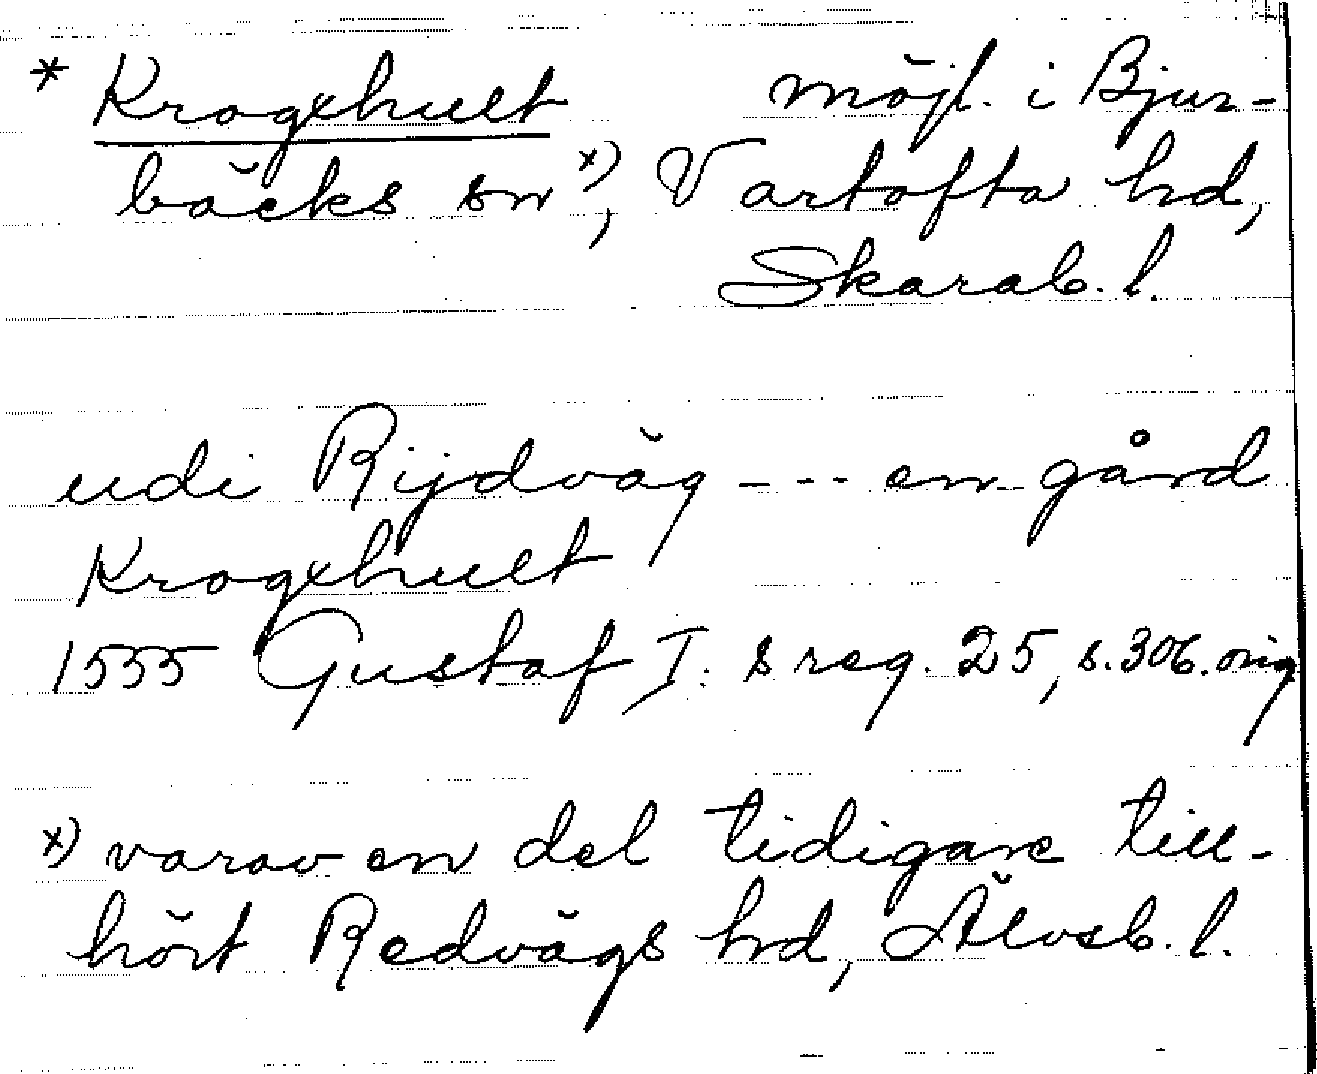 * Krogxhult möjl. i Bjur-
bäcks sn x), Vartofta hd,
Skarab. l.
udi Rijdväg --- en gård
Krogxhult
1555 Gustaf I:s reg. 25, s. 306. orig
x) varav en del tidigare till-
hört Redvägs hd, Älvsb. l.